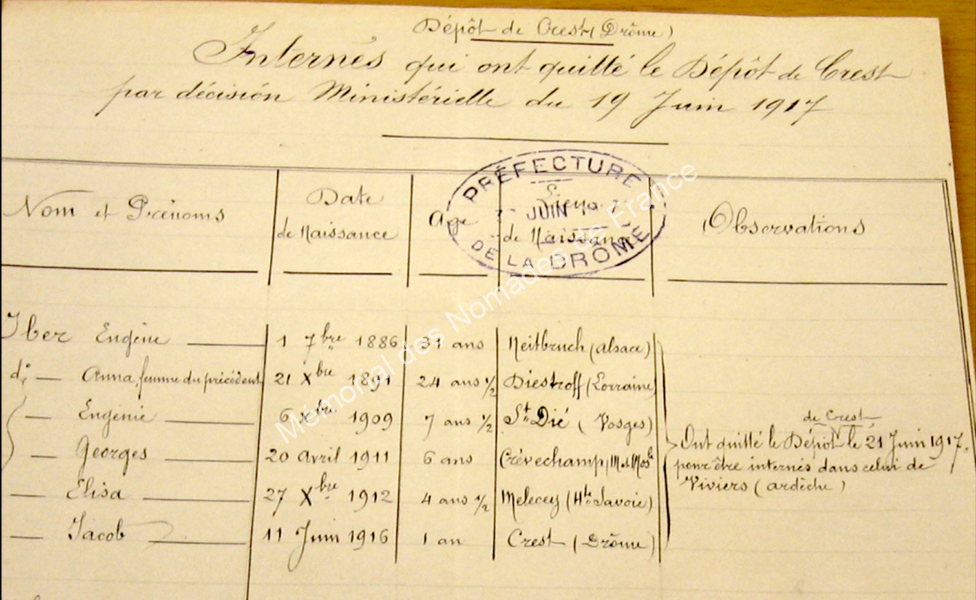 Dépôt de Crest (Drôme)
Internés qui ont quitté le Dépôt de Crest
par décision Ministérielle du 19 Juin 1917
PRÉFECTURE
JUIN 19
DE LA DRÔME
Nom et Prénoms Date de Naissance Age Lieu de Naissance Observations
Iber Eugène 1 7bre 1886 31 ans Neitbruch (Alsace)
do — Anna, femme du précédent 21 Xbre 1891 24 ans ½ Diestroff (Lorraine)
— Eugénie 6 1909 7 ans ½ St Dié (Vosges)
— Georges 20 avril 1911 6 ans Crévechamp, M.et Mosle
— Elisa 27 Xbre 1912 4 ans ½ Melecey (Hte Savoie)
— Jacob 11 Juin 1916 1 an Crest (Drôme)
de Crest
Ont quitté le Dépôt le 21 Juin 1917,
pour être internés dans celui de
Viviers (ardèche)
Mémorial des Nomades de France